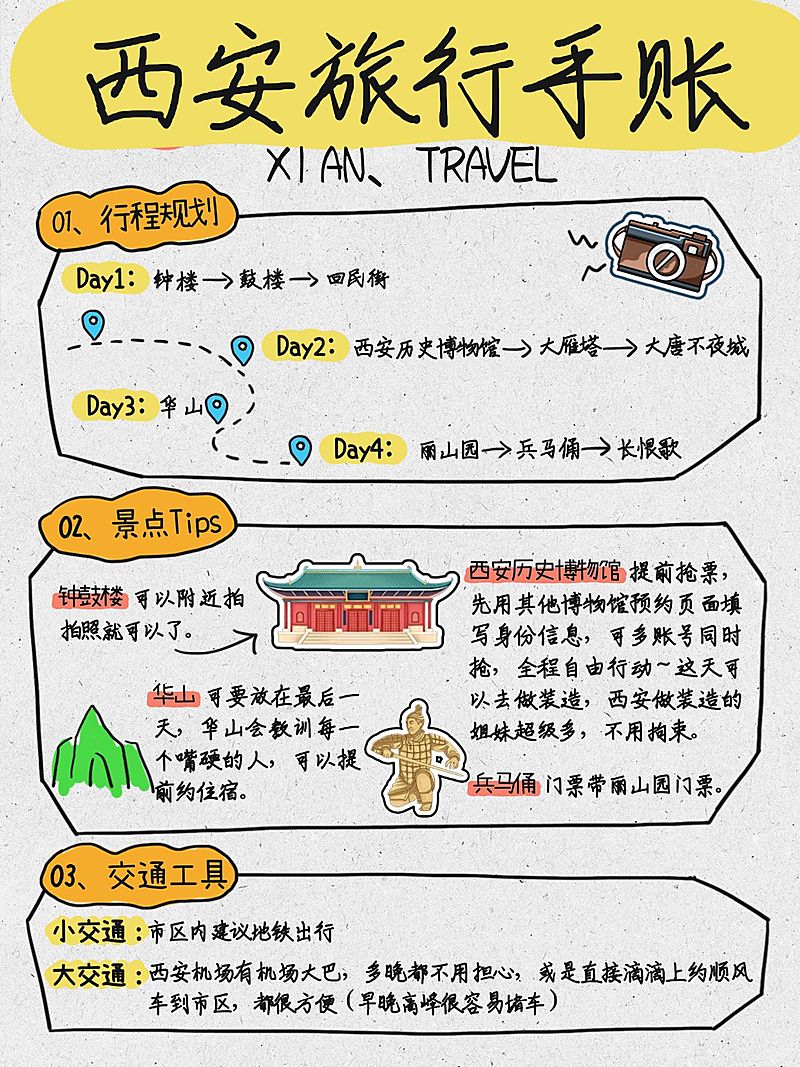 西安旅行手账
XI AN、TRAVEL
01、行程规划
Day1：钟楼→鼓楼→回民街
Day2：西安历史博物馆→大雁塔→大唐不夜城
Day3：华山
Day4：丽山园→兵马俑→长恨歌
02、景点Tips
钟鼓楼 可以附近拍
拍照就可以了。
华山 可要放在最后一
天，华山会教训每一
个嘴硬的人，可以提
前约住宿。
西安历史博物馆 提前抢票，
先用其他博物馆预约页面填
写身份信息，可多账号同时
抢，全程自由行动~这天可
以去做装造，西安做装造的
姐妹超级多，不用拘束。
兵马俑 门票带丽山园门票。
03、交通工具
小交通：市区内建议地铁出行
大交通：西安机场有机场大巴，多晚都不用担心，或是直接滴滴上约顺风
车到市区，都很方便（早晚高峰很容易堵车）